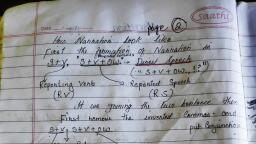 Date
Page ②
saathi
How Narration look like
First the formation of Narration is
S+V, "S+V+OW" → Direct Speech
("S+V+OW..!?")
Reporting Verb Reported Speech
(R.V) (R.S)
If we joining the two sentence then
First remove the inverted commas and
put Conjunction
S+V+ S+V+OW